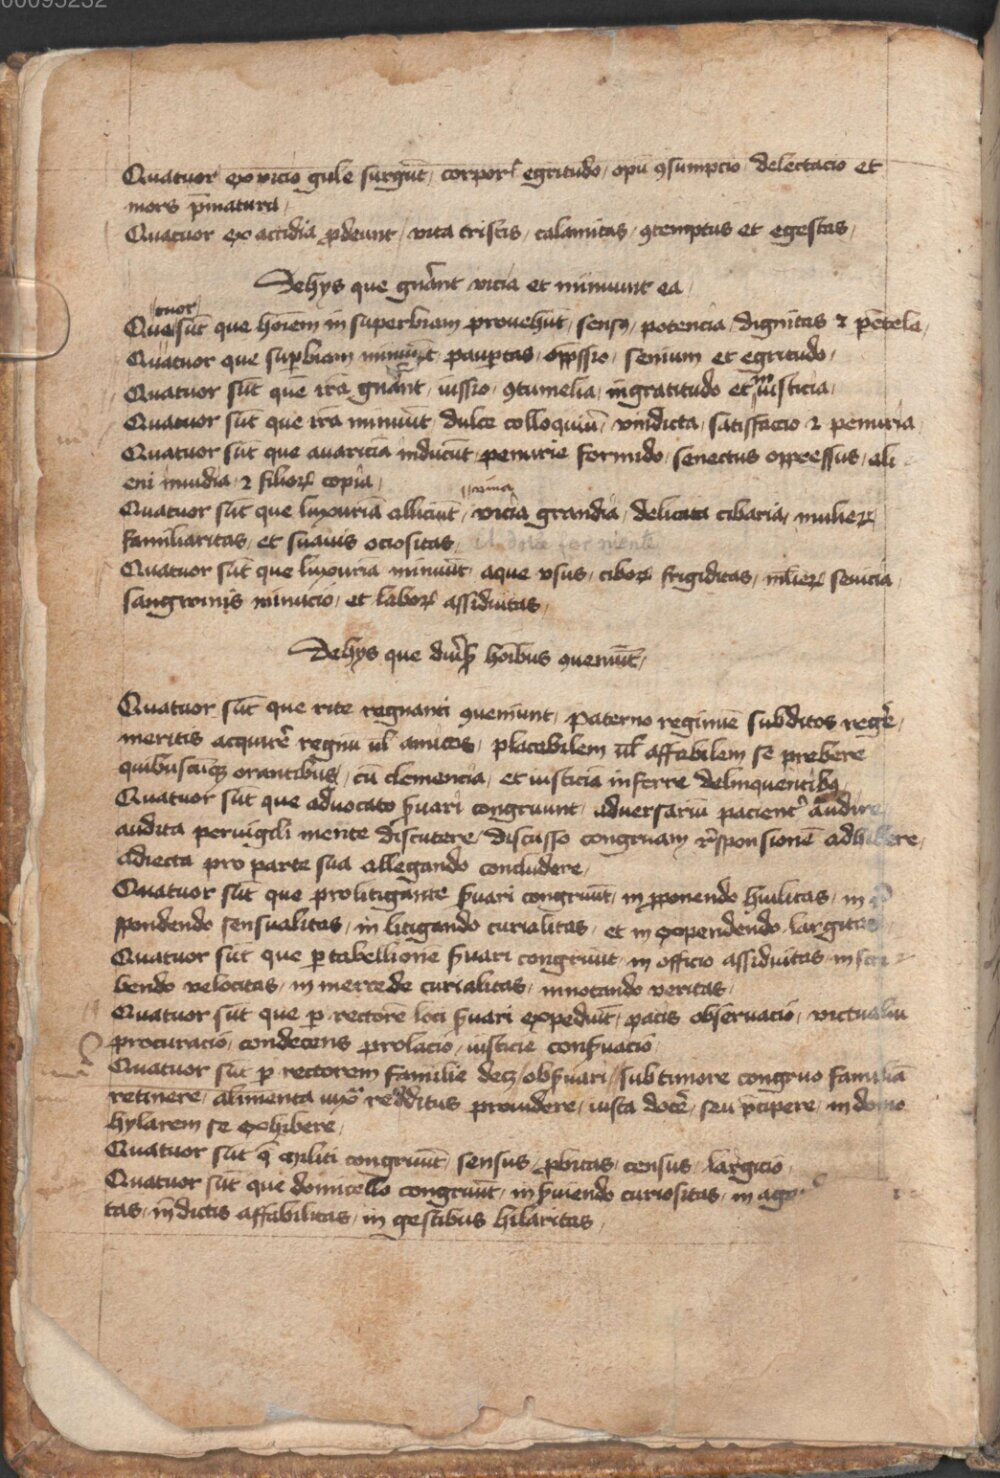 00095232
Quatuor ex vicio gule surgūt / corpor̉ egritudo / opū ꝯsumpcio / delectacio et
mors p̄matura /
Quatuor ex accidia ꝓdeunt / vita tristis / calamitas / ꝯtemptus et egestas /
De hys que gn̄ant vicia et minuunt ea /
tuor
Qua sūt que hoīem in superbiam provehūt / sensꝯ / potencia / dignitas ⁊ pētela /
Quatuor que suꝑbiam minuūt pauꝑtas / opp̄ssio / senium et egritudo /
Quatuor sūt que irā gn̄ant / iussio / ꝯtumelia / ingratitudo et iniusticia /
Quatuor sūt que irā minuūt dulce colloquiū / vindicta / satisfaccio ⁊ penuria
Quatuor sūt que auariciā inducūt / penurie formido / senectus oppressus / ali
eni inuidia / ⁊ filioꝝ copia /
vina
Quatuor sūt que luxuriā alliciūt / vicia grandia / delicata cibaria / mulieꝝ
familiaritas / et suauis ociositas
Quatuor sūt que luxuriā minuūt / aque vsus / ciboꝝ frigiditas / ml̄ieꝝ seuicia /
sangwinis minucio / et laboꝝ assiduitas /
De hys que diūs̉ hoībus ꝯueniūt /
Quatuor sūt que rite regnanti ꝯueniunt / paterno regimīe subditos reg̉e /
meritis acquir̉e regnū ul̄ amicos / placabilem ul̄ affabilem se prebere
quibuscūqꝫ orantibus / cū clemencia / et iusticiā inferre delinquentibꝯ
Quatuor sūt que aduocato ꝑuari congruunt / aduersariū pacient̉ audire
audita peruigili mente discutere / discusso congruam r̄sponsionē adhibere /
adiecta pro parte sua allegando concludere /
Quatuor sūt que pro litigante ꝑuari congruūt / in ꝓponendo hūilitas / in r̄
spondendo sensualitas / in litigando curialitas / et in expendendo largitas
Quatuor sūt que ꝑ tabellionē ꝑuari congruūt / in officio assiduitas / in scri
bendo velocitas / in mercede curialitas / in notando veritas /
Quatuor sūt que ꝑ rectorē loci ꝑuari expediūt / pacis obseruacio / victualiū
procuracio / condecens prolacio / iusticie conꝑuacio
Quatuor sūt ꝑ rectorem familie decꝫ obꝑuari / sub timore congruo familiā
retinere / alimenta redditus prouidere / iusta docē / seu p̄cipere / in domo
hylarem se exhibere /
Quatuor sūt q̄ militi congruūt / sensus / ꝓbitas / census / largicio
Quatuor sūt que domicello congruūt / in ꝑuiendo curiositas / in
tas / in dictis affabilitas / in gestibus hilaritas /